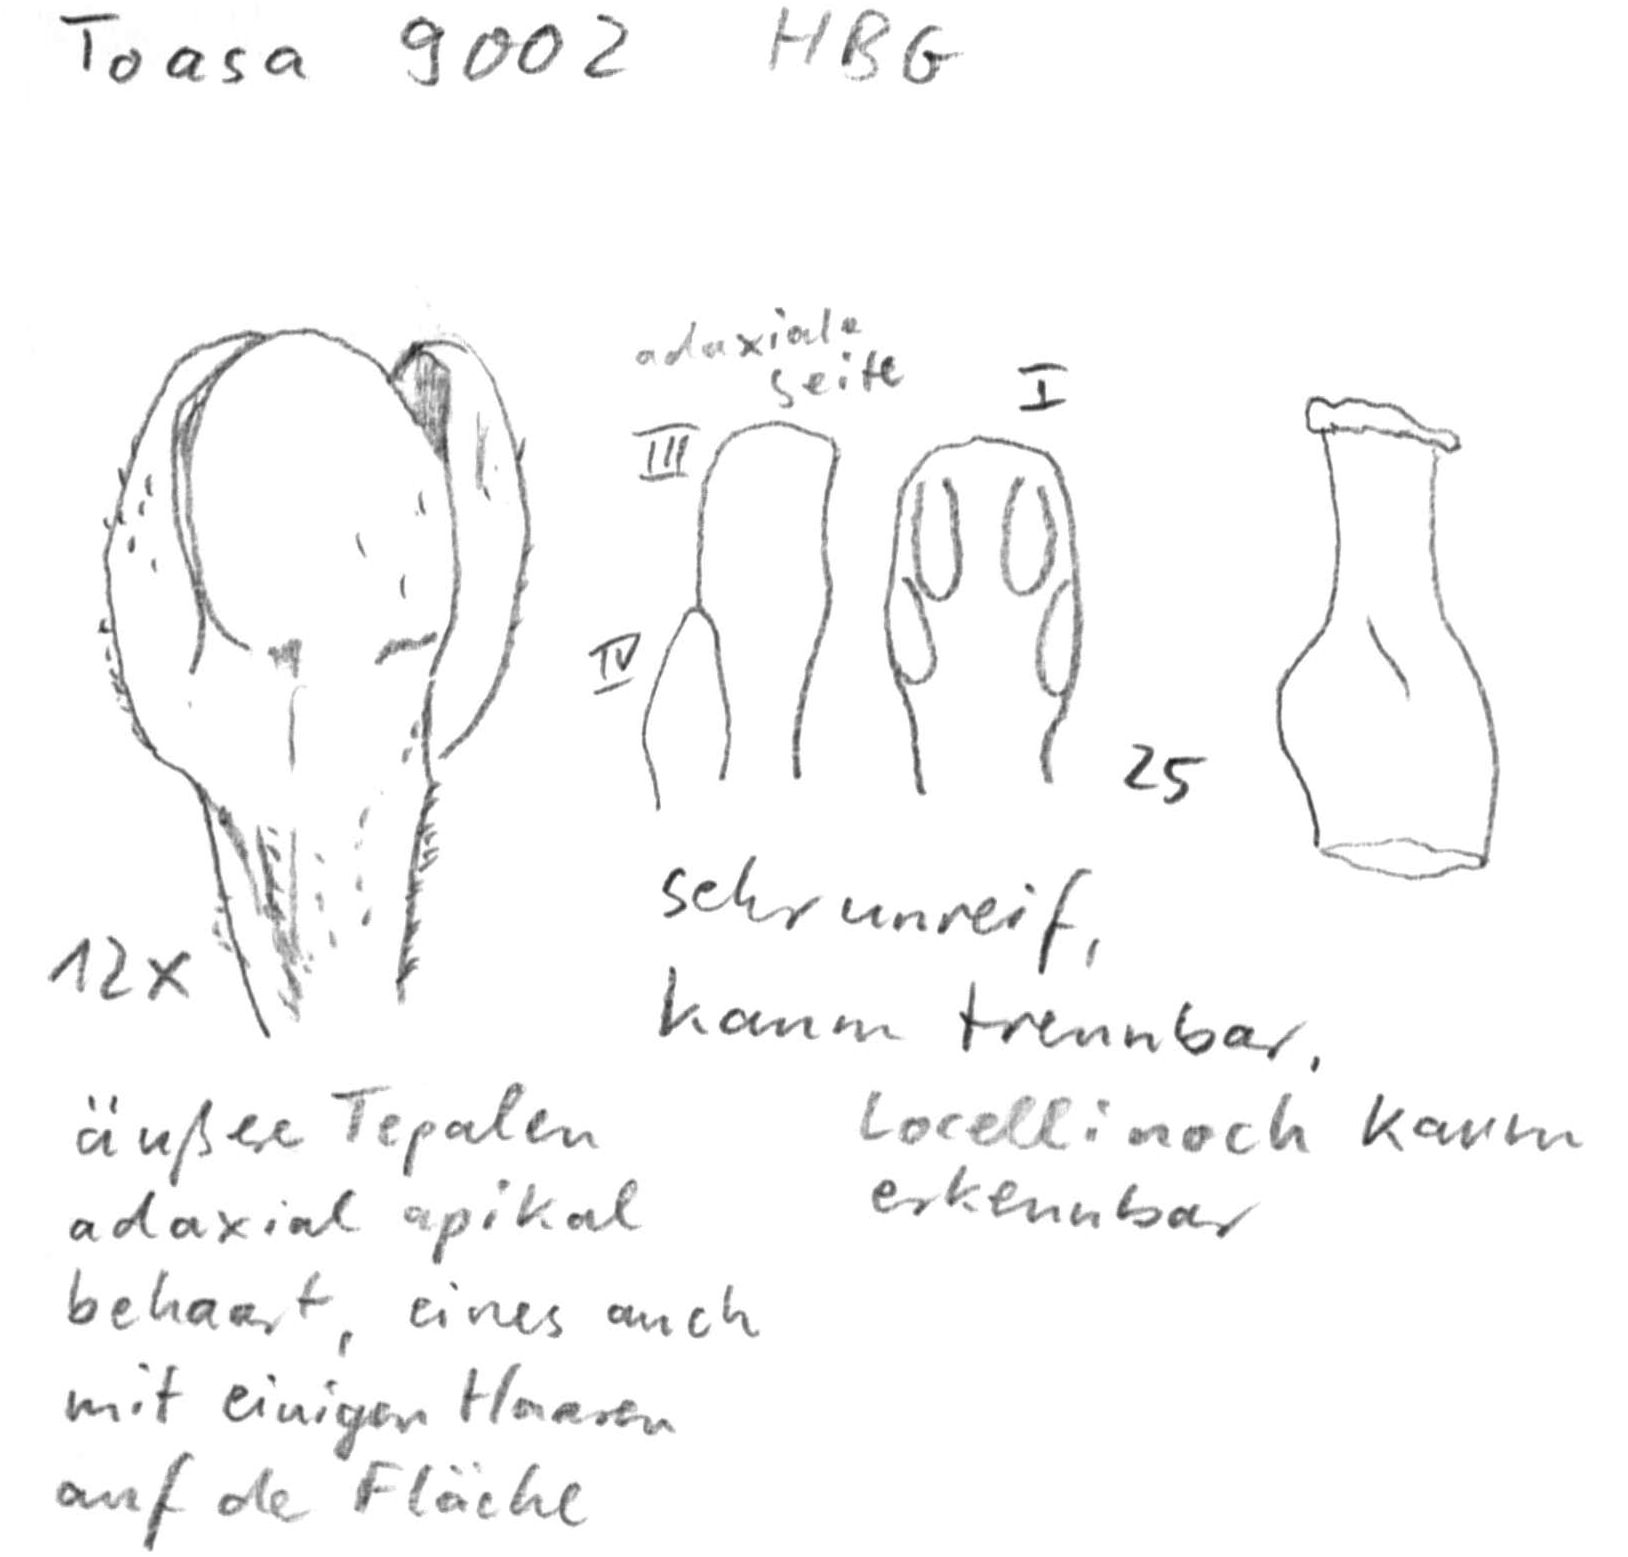 Toasa 9002 HBG
adaxiale
seite
I
III
IV
25
sehr unreif,
12x
kaum trennbar,
äußere Tepalen
Locelli noch kaum
adaxial apikal
erkennbar
behaart, eines auch
mit einigen Haaren
auf de Fläche